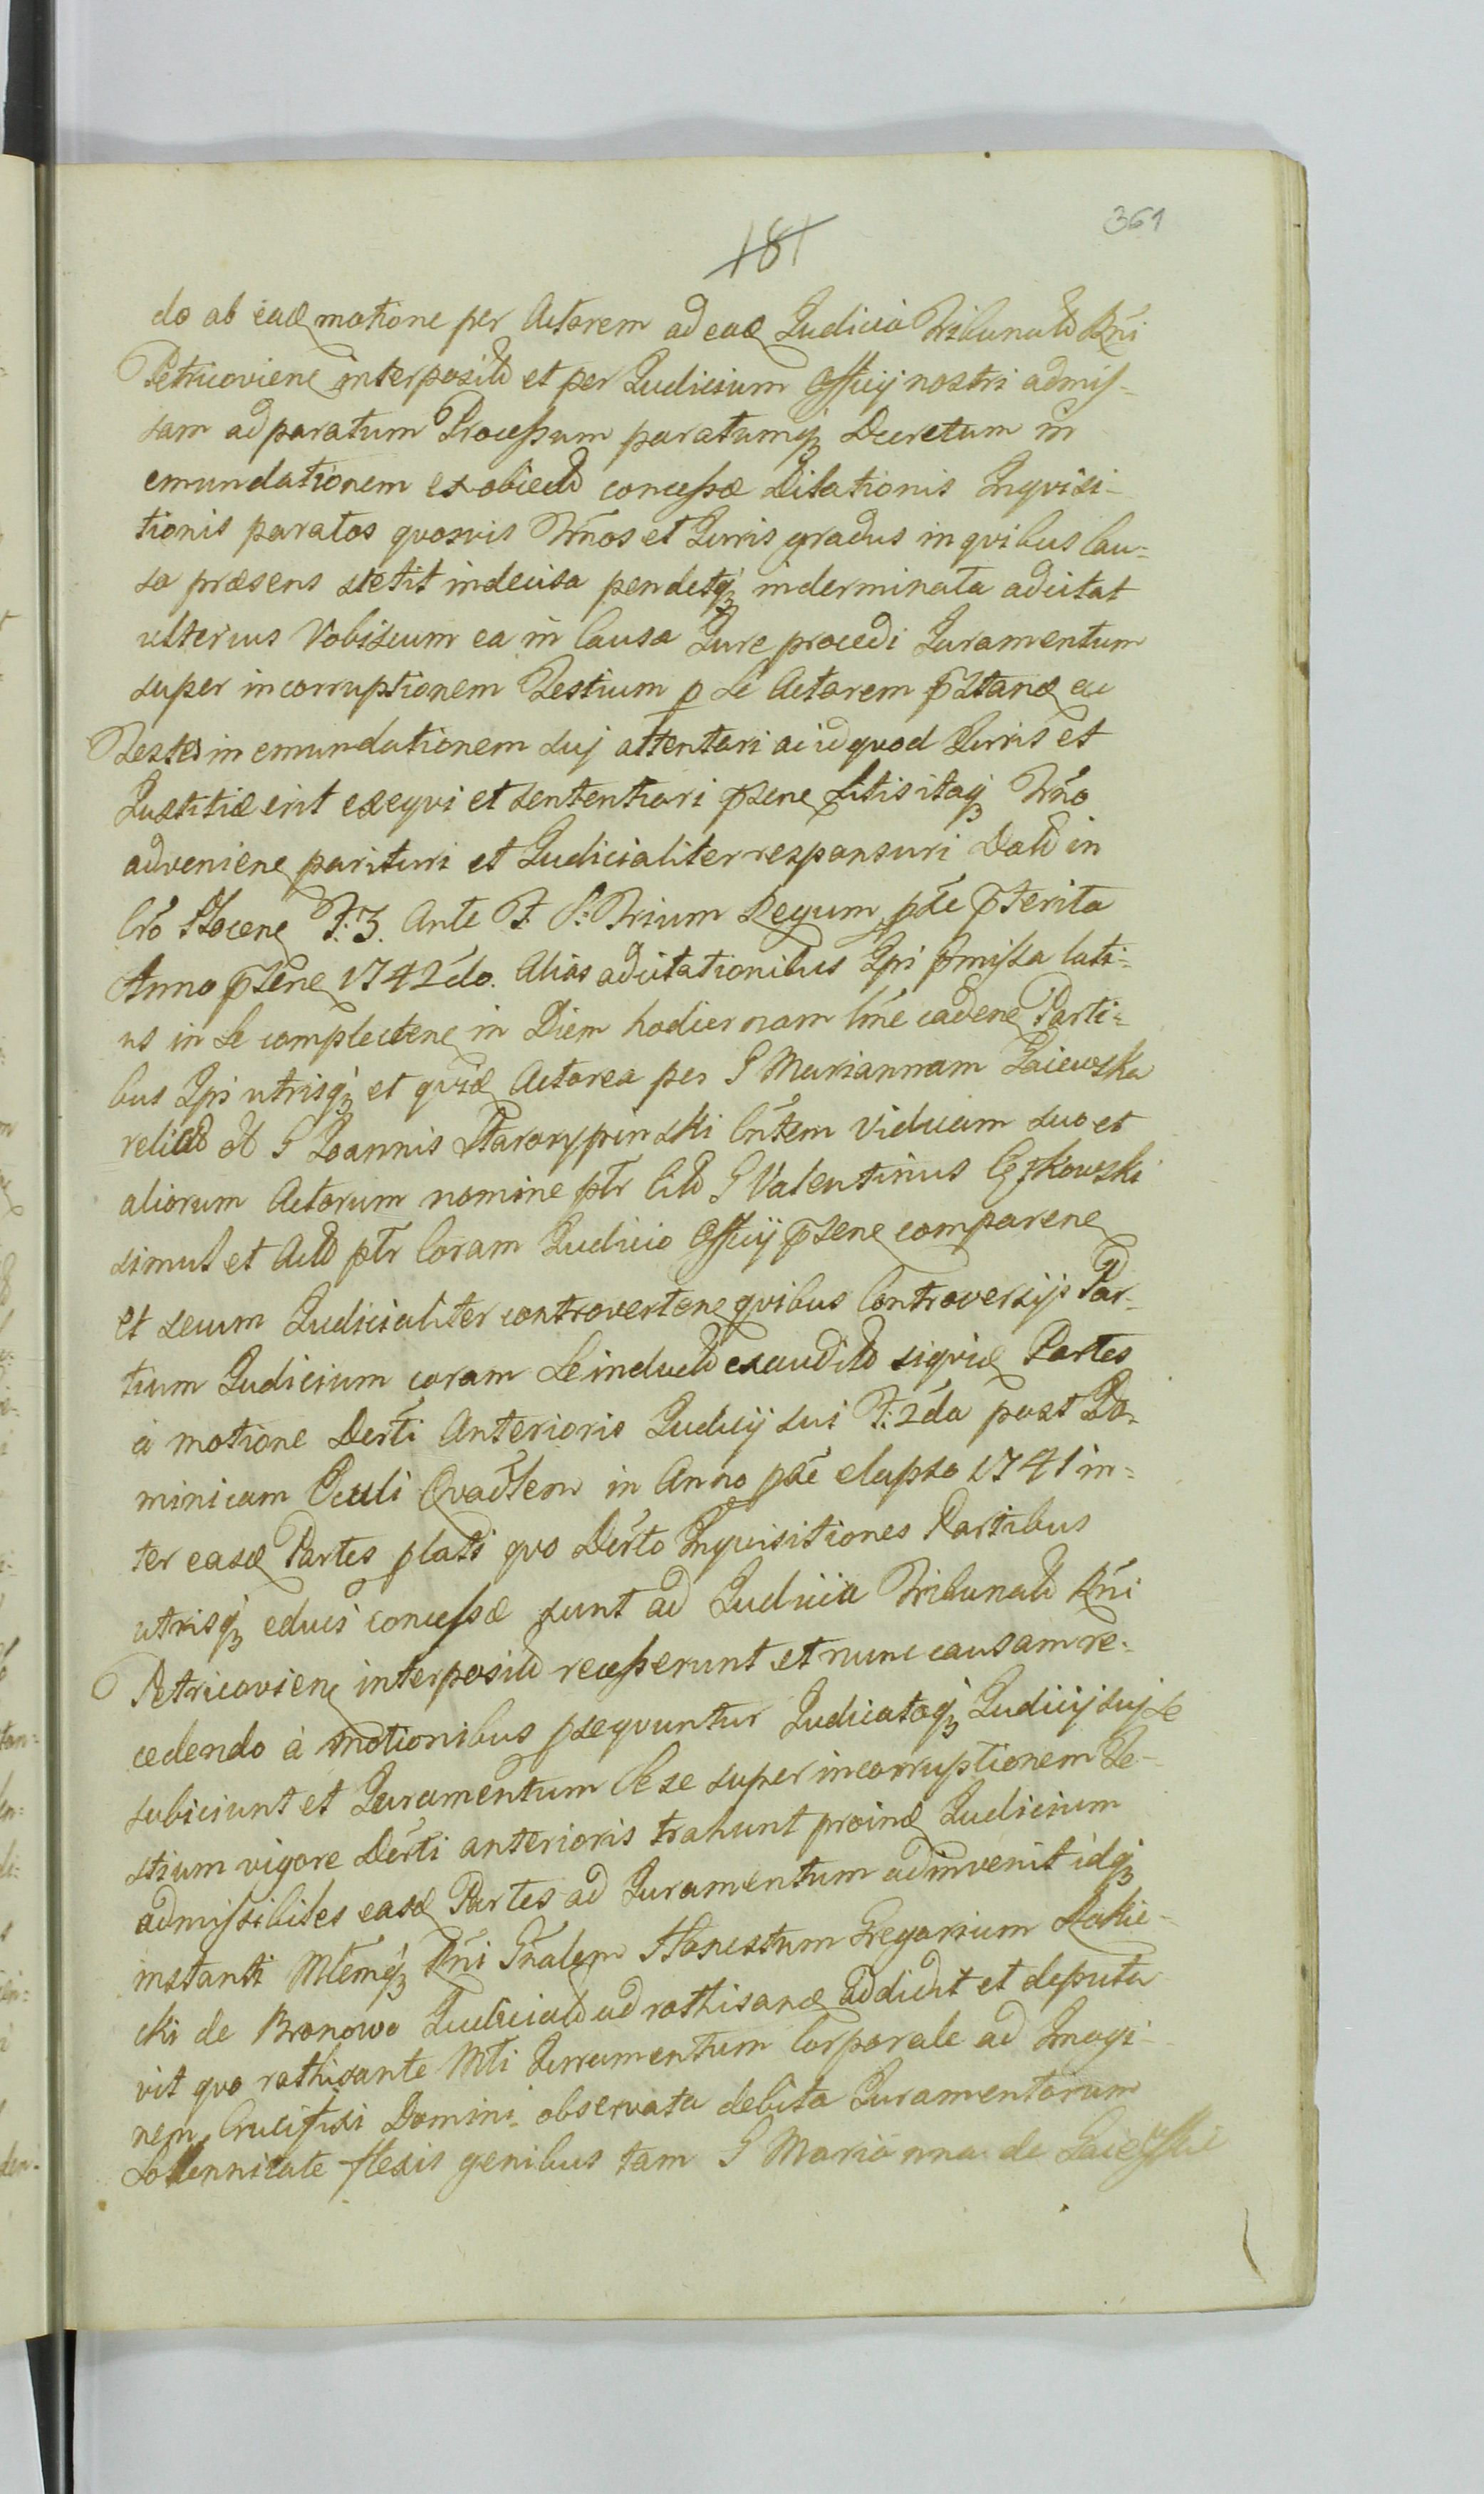 361
181
do ab eade motione per Actorem ad eade Judicia Tribunalis Rni
Petricoviene interposita et per Judicium Officij nostri admis-
sam ad paratum Processum paratumq Decretum in
emundationem ex obiectis concessæ Dilationis Inqvisi-
tionis paratos qvosvis Trnos et Juris gradus in qvibus Cau-
sa præsens stetit indecisa pendetq inderminata adcitat
ulterius Vobiscum ea in Causa Jure procedi Juramentum
super incorruptionem Testium p se Actorem pstande ac
Testes in emundationem suj attentari ac id qvod Juris et
Justitiæ erit exeqvi et sententiari psene sitis itaq Trno
adveniene parituri et Judicialiter responsuri Datis in
Cro Plocene F: 3. Ante F. S: Trium Regum pxe pterita
Anno psene 1742do. Alias adcitationibus Ipi pmissa lati-
us in se complectene in Diem hodiernam lme cadene Parti-
bus Ipi utrisq et qvide Actorea per G Mariannam Gaiewska
relictis olt G Joannis Starorypinski Cntem Viduam suo et
aliorum Actorum nomine ptr Citts G Valentinus Cętkowski
simul et Actis ptr Coram Judicio Officij psene comparene
et secum Judicialiter controvertene qvibus Controversijs Par-
tium Judicium coram se inductis exauditis siqvide Partes
à motione Derti Anterioris Judicij sui F: 2da post Do-
minicam Oculi Qvadlem in Anno pxe elapso 1741 in-
ter easde Partes plati qvo Derto Inqvisitiones Partibus
utrisq educi concessæ sunt ad Judicia Tribunalis Rni
Petricoviene interposita recesserunt et nunc causam re-
cedendo à motionibus pseqvuntur Judicatoq Judicij suj se
subiciunt et Juramentum sese super incorruptionem Te-
stium vigore Derti anterioris trahunt proinde Judicium
admissibiles easde Partes ad Juramentum adinvenit idq
instanti Mlemq Rni Gnalem Honestum Gregorium Rokic-
cki de Bronowo Judicialis ad rothisande addidit et deputa
vit qvo rothisante Mli Jurramentum Corporale ad Imagi-
nem Crucifixi Domini observata debita Juramentorum
Sollennitate flexis genibus tam G Marianna de Gaiewskie